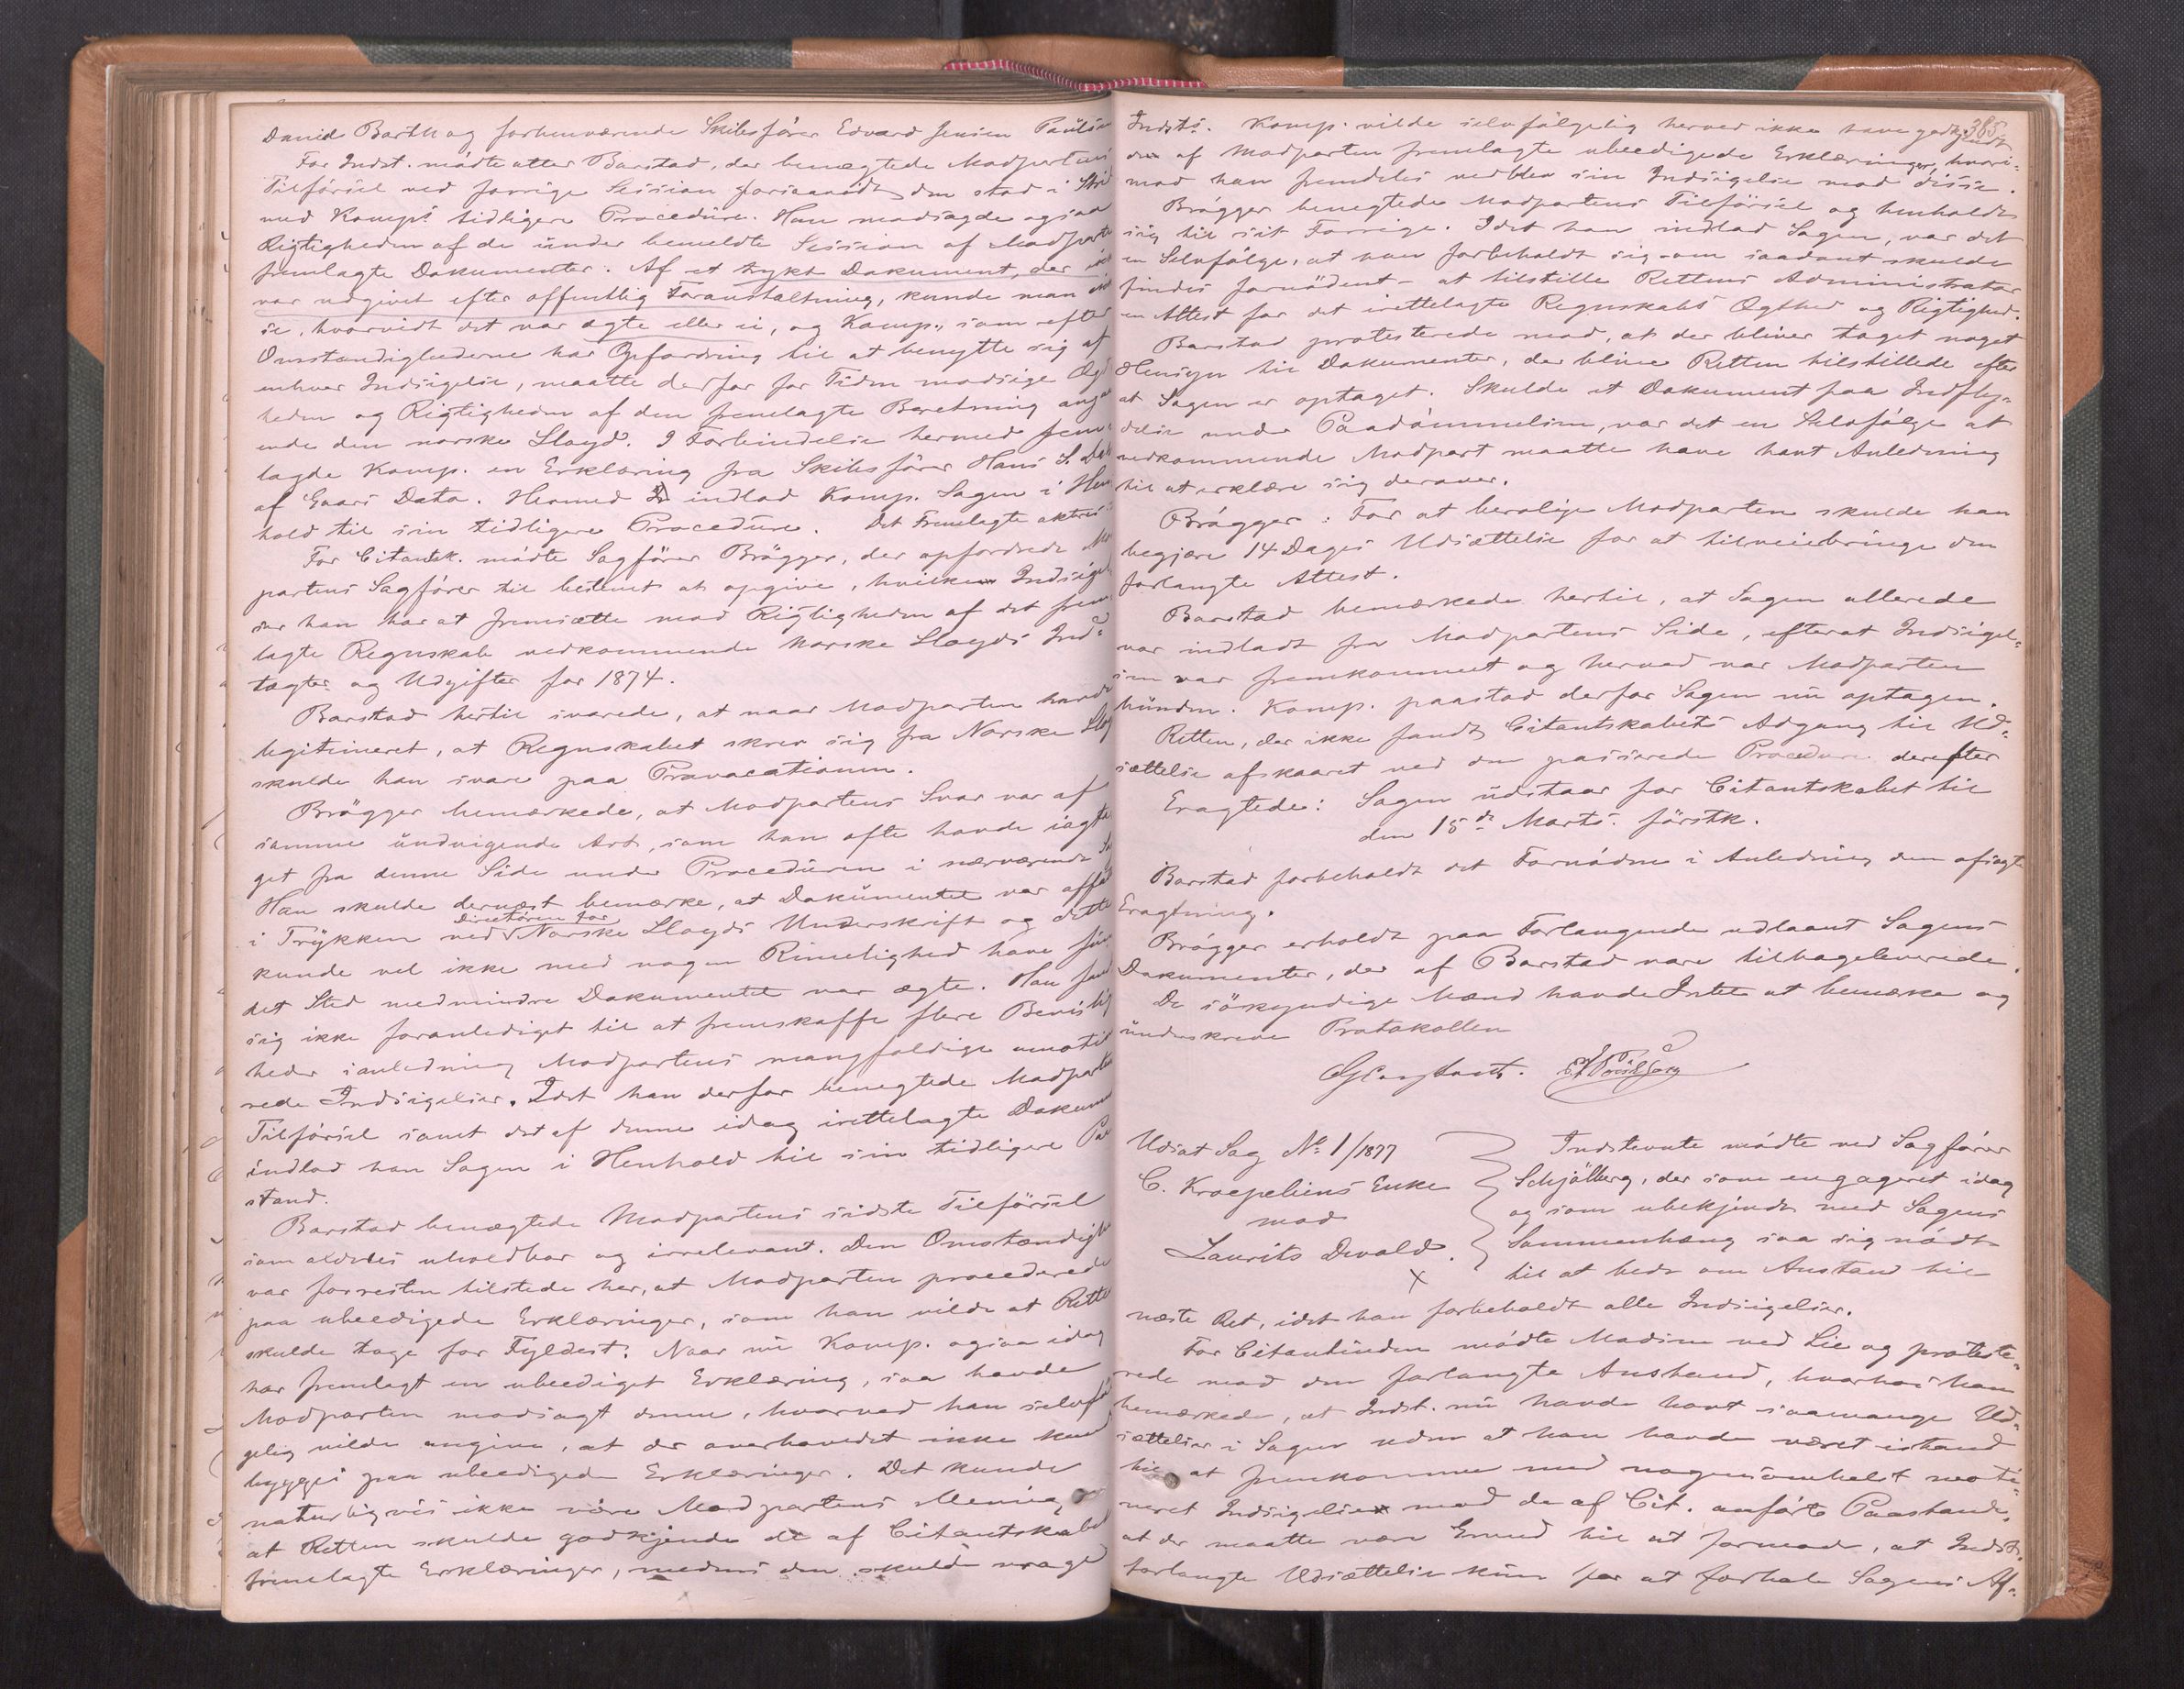 David Barth og forhenværende Skibsfører Edvard Jensen Paulsen
For Indst. mødte atter Barstad, der benægtede Modpartens
Tilførsel ved forrige Session forsaavidt den stod i Strid
med Komp.s tidligere Procedüre. Han modsagde ogsaa
Rigtigheden af de ünder bemeldte Session af Modparten
fremlagte Dokumenter. Af et trykt Dokument, der ikke
var udgivet efter offentlig Foranstaltning, kunde man ikke
se, hvorvidt det var ægte eller ei, og Komp., som efter
Omstændighederne har Opfordring til at benytte sig af
enhver Indsigelse, maatte derfor for Tiden modsige Ægt
heden og Rigtigheden af den fremlagte Beretning angaa
ende den norske Lloyd. I Forbindelse hermed frem¬
lagde Komp. en Erklæring fra Skibsfører Hans S.
af Gaars Dato. Hermed indlod Komp. Sagen i Hen
hold til sin tidligere Procedüre. Det Fremlagte akteres
For Citantsk. mødte Sagfører Brøgger, der opfordrede Mod
partens Sagfører til bestemt at opgive, hvilken Indsigel
ser han har at fremsætte mod Rigtigheden af det frem
lagte Regnskab vedkommende Norske Lloyds Ind¬
tægter og Udgifter for 1874.
Barstad hertil svarede, at naar Modparten havde
legitimeret, at Regnskabet skrev sig fra Norske Lloyd
skulde han svare paa Provocationen.
Brøgger bemærkede, at Modpartens Svar var af
samme ündvigende Art, som han ofte havde iagtta
get fra denne Side under Procedüren i nærværende Sag
Han skulde dernæst bemærke, at Dokümentet var affat
i Trykken ved Directøren for Norske Lloyds Underskrift og dette
kunde vel ikke med nogen Rimelighed have fün
det Sted medmindre Dokumentet var ægte. Han fandt
sig ikke foranlediget til at fremskaffe flere Bevislig
heder ianledning Modpartens mangfoldige umotive
rede Indsigelser. Idet han derfor benegtede Modpartens
Tilførsel samt det af denne idag irettelagte Dokument
indlod han Sagen i Henhold til sin tidligere Paa
stand.
Barstad benægtede Modpartens sidste Tilførsel
som aldeles uholdbar og irrelevant. Den Omstændighed
var forresten tilstede her, at Modparten procederede
paa ubeedigede Erklæringer, som han vilde at Retten
skulde tage for Fyldest. Naar nü Komp. ogsaa idag
har fremlagt en ubeediget Erklæring, saa havde
Modparten modsagt denne, hvorved han selvføl
gelig vilde angive, at der overhovedet ikke kunde
bygges paa ubeedigede Erklæringer. Det kunde
naturligvis ikke være Modpartens Mening,
at Retten skulde godkjende de af Citantskabet
fremlagte Erklæringer, medens den skulde vrage
365.
Indsts. Komp. vilde selvfølgelig herved ikke have godkjendt
de af Modparten fremlagte ubeedigede Erklæringer, hvori¬
mod han fremdeles vedblev sin Indsigelse mod disse.
Brøgger benegtede Modpartens Tilførsel og henholdt
sig til sit Forrige. Idet han indlod Sagen, var det
en Selvfølge, at han forbeholdt sig – om saadant skulde
findes fornødent – at tilstille Rettens Administrator
en Attest for det irettelagte Regnskabs Ægthed og Rigtighed.
Barstad protesterede mod, at der bliver taget noget
Hensyn til Dokumenter, der blive Retten tilstillede efter
at Sagen er optaget. Skulde et Dokument faa Indfly¬
delse under Paadømmelsen, var det en Selvfølge at
vedkommende Modpart maatte have havt Anledning
til at erklære sig derover.
Brøgger: For at berolige Modparten skulde han
begjære 14 Dages Udsættelse for at tilveiebringe den
forlangte Attest.
Barstad bemærkede hertil, at Sagen allerede
var indladt fra Modpartens Side, efterat Indsigel¬
sen var fremkommet og herved var Modparten
bünden. Komp. paastod derfor Sagen nü optagen.
Retten, der ikke fandt Citantskabets Adgang til Ud¬
sættelse afskaaret ved den passerede Procedure derefter
Eragtede: Sagen üdstaar for Citantskabet til
den 15de Marts. førstk.
Barstad forbeholdt det Fornødne i Anledning den afsagte
Eragtning.
Brøgger erholdt paa Forlangende udlaant Sagens
Dokumenter, der af Barstad vare tilbageleverede.
De søkyndige Mænd havde Intet at bemærke og
ünderskrev Protokollen
Udsat Sag No 1/1877
C. Kroepeliens Enke
mod
Laurits Devold.
X
Indstevnte mødte ved Sagfører
Schjølberg, der som engageret idag
og som ubekjendt med Sagens
Sammenhæng saa sig nødt
til at bede om Anstand til
næste Ret, idet han forbeholdt alle Indsigelser.
For Citantinden mødte Madsen ved Lie og proteste¬
rede mod den forlangte Anstand, hvorhos han
bemærkede, at Indst. nü havde havt saamange Ud¬
sættelser i Sagen uden at han havde været istand
til at fremkomme med nogensomhelst moti¬
veret Indsigelse mod de af Cit. anførte Paastande,
at der maatte være Grund til at formode, at Indst.
forlangte Udsættelse kün for at forhale Sagens Af¬